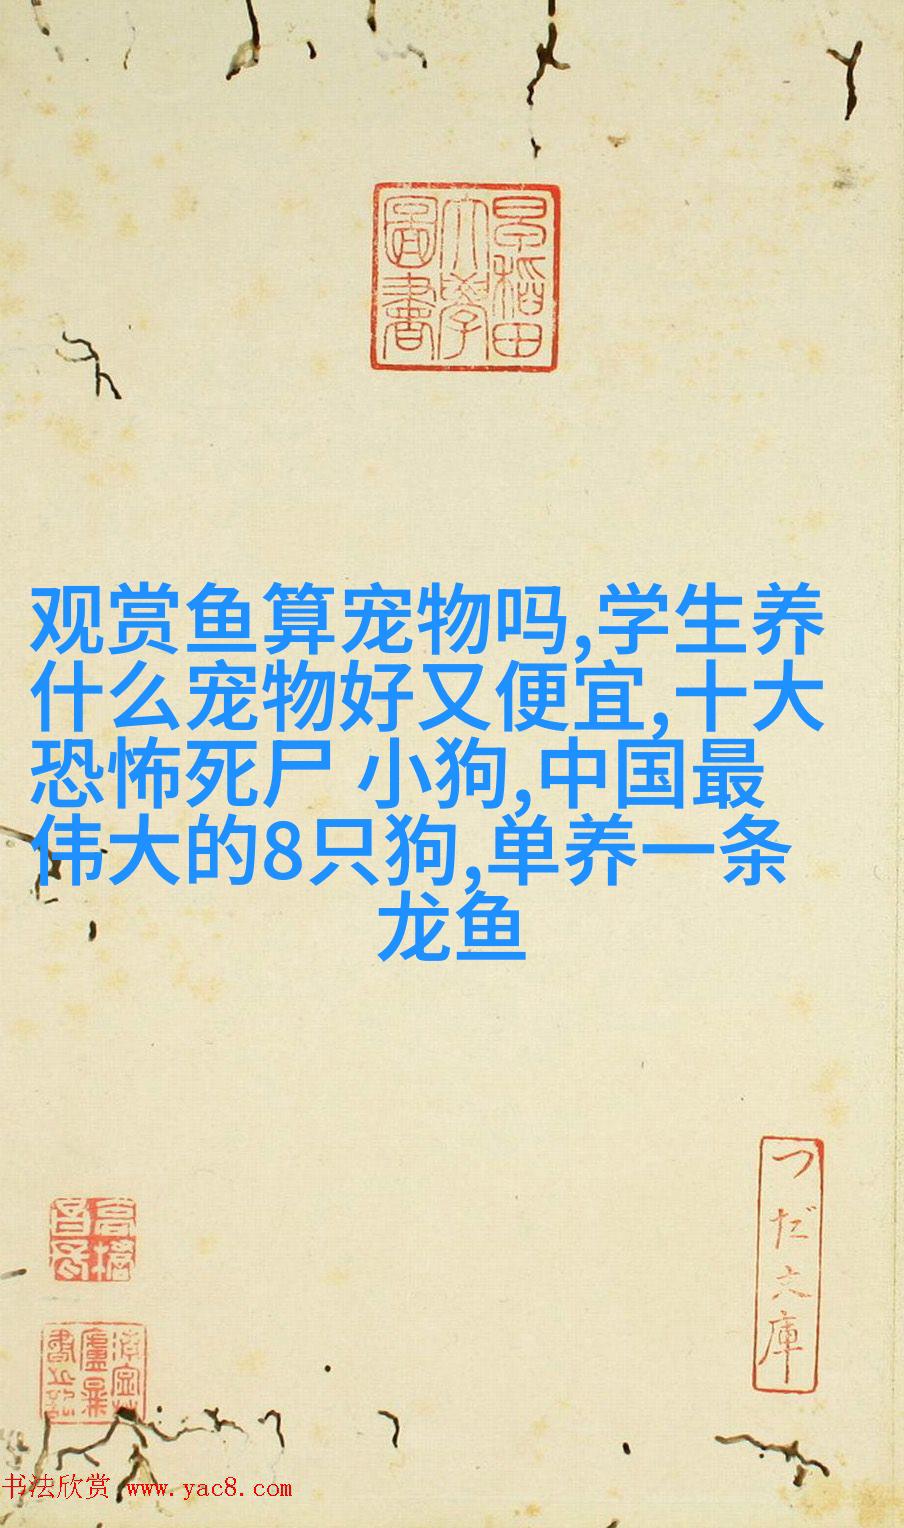 早稲田
大學
圖書
观赏鱼算宠物吗,学生养
什么宠物好又便宜,十大
恐怖死尸 小狗,中国最
伟大的8只狗,单养一条
龙鱼
つだ文庫
书法欣赏 www.yac8.com